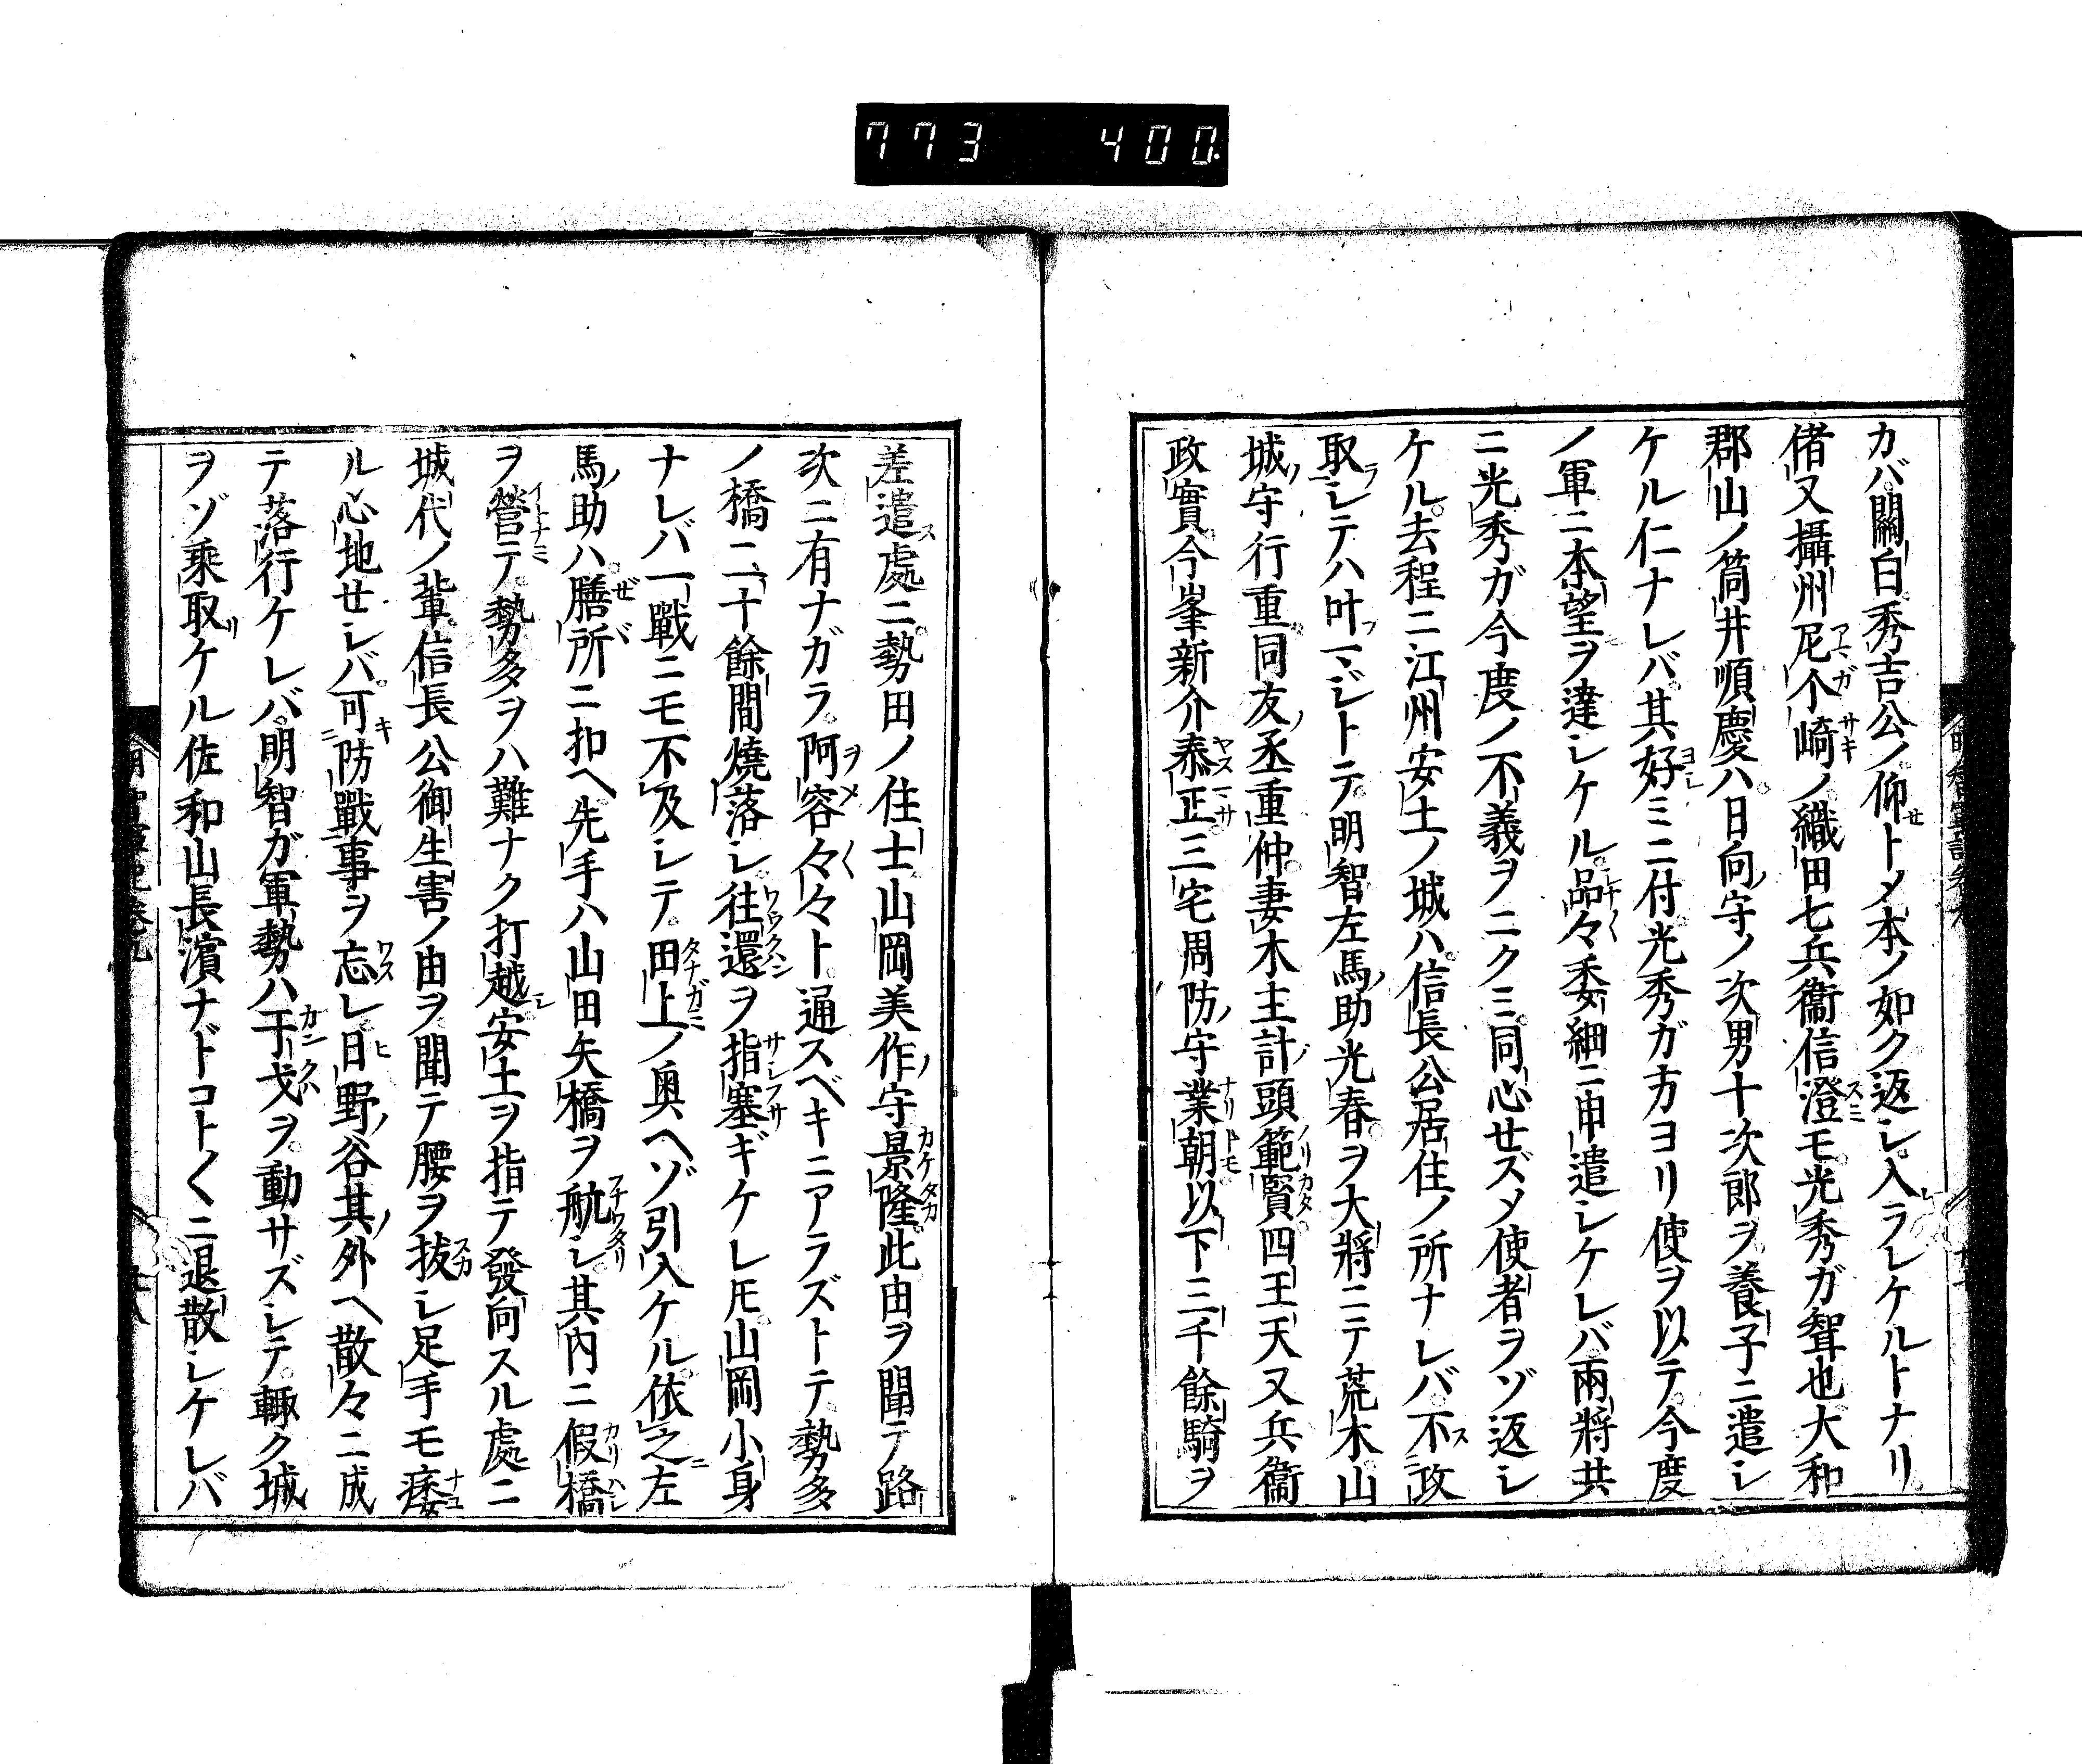 773 400
カバ關白秀吉公ノ仰トメ本ノ如ク返シ入ラレケルトナリ
偖又攝州尼个崎ノ織田七兵衞信澄モ光秀ガ聟也大和
郡山ノ筒井順慶ハ日向守ノ次男十次郎ヲ養子ニ遣シ
ケル仁ナレバ其好ミニ付光秀ガ方ヨリ使ヲ以テ今度
ノ軍ニ本望ヲ達シケル品々委細ニ申遣シケレバ兩將共
ニ光秀ガ今度ノ不義ヲニクミ同心せズメ使者ヲゾ返シ
ケル去程ニ江州安土ノ城ハ信長公居住ノ所ナレバ不政
取シテハ叶マジトテ明智左馬助光春ヲ大將ニテ荒木山
城守行重同友ノ丞重仲妻木主計頭範賢四王天又兵衞
政實今峯新介泰正三宅周防守業朝以下三千餘騎ヲ
差遣處ニ勢田ノ住士山岡美作守景隆此由ヲ聞テ路
次ニ有ナガラ阿容々々ト通スベキニアラズトテ勢多
ノ橋二十餘間燒落シ往還ヲ指塞ギケレ𪜈山岡小身
ナレバ一戰ニモ不及シテ田上ノ奥ヘゾ引入ケル依之左
馬助ハ膳所ニ扣ヘ先手ハ山田矢橋ヲ航シ其内ニ假橋
ヲ營テ勢多ヲハ難ナク打越安土ヲ指テ發向スル處ニ
城代ノ輩信長公御生害ノ由ヲ聞テ腰ヲ抜シ足手モ痿
ル心地せシバ可防戰事ヲ忘レ日野谷其外ヘ散々ニ成
テ落行ケレバ明智ガ軍勢ハ干戈ヲ動サズシテ輙ク城
ヲゾ乘取ケル佐和山長濱ナドコト〱ニ退散シケレバ